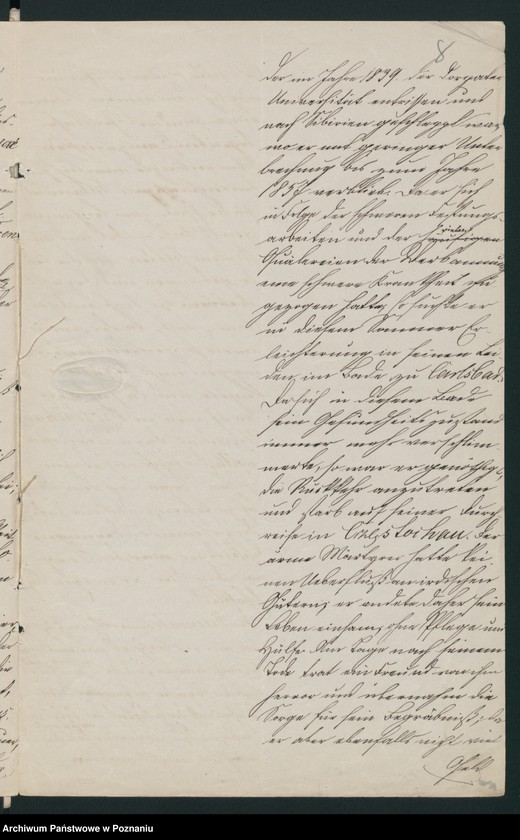 8
der im Jahre 1839 der Dorpater
Universität entrissen und
nach Sibirien geschleppt war,
wo er mit geringer Unter
brechung bis zum Jahre
1857 verblieb. Da er sich
in Folge der schweren Festungs-
arbeiten und der vielen
Quälereien der Verbannung
eine schwere Krankheit zu
gezogen hatte, so suchte er
in diesem Sommer Er
leichterung in seinen Lei
den, im Bade zu Carlsbad.
Da sich in diesem Bade
sein Gesundheitszustand
immer mehr verschlim
merte, so war er genöthigt,
die Rückkehr anzutreten
und starb auf seiner Durch
reise in Częstochau. Der
arme Märtyrer hatte kei
nen Ueberfluß an irdischen
Gütern; er endete daher sein
Leben einsam, ohne Pflege und
Hülfe. Am Tage nach seinem
Tode trat ein Freund von ihm
hervor und übernahm die
Sorge für sein Begräbniß; da
er aber ebenfalls nicht viel
Geld
Archiwum Państwowe w Poznaniu